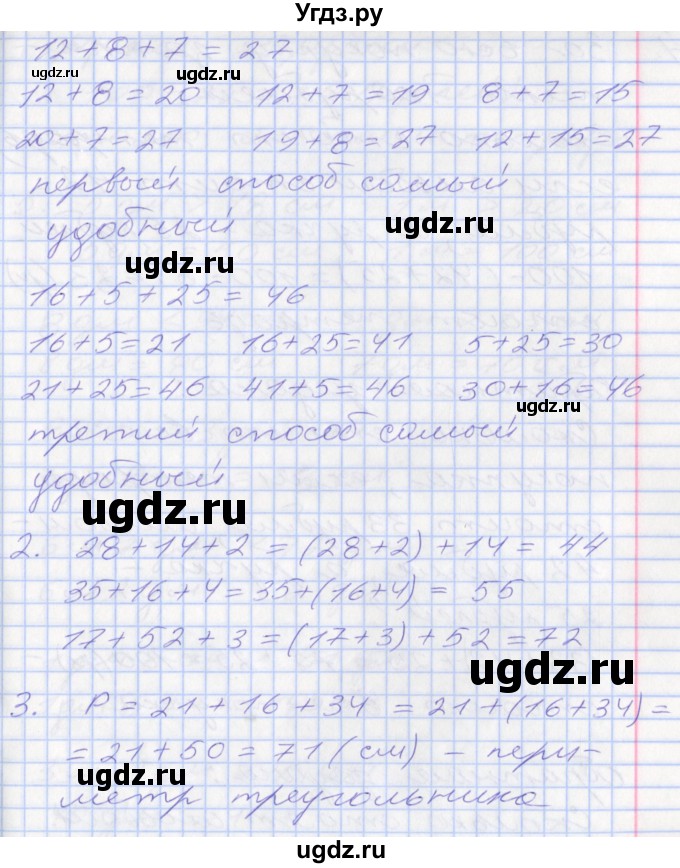 Угдз.ру
12 + 8 + 7 = 27
ugdz.ru ugdz.ru
12 + 8 = 20 12 + 7 = 19 8 + 7 = 15
20 + 7 = 27 19 + 8 = 27 12 + 15 = 27
первый способ самый
ugdz.ru
удобный
ugdz.ru
16 + 5 + 25 = 46
16 + 5 = 21 16 + 25 = 41 5 + 25 = 30
21 + 25 = 46 41 + 5 = 46 30 + 16 = 46
ugdz.ru
третий способ самый
удобный
ugdz.ru
2. 28 + 14 + 2 = (28 + 2) + 14 = 44
35 + 16 + 4 = 35 + (16 + 4) = 55
17 + 52 + 3 = (17 + 3) + 52 = 72
ugdz.ru
3. P = 21 + 16 + 34 = 21 + (16 + 34) =
= 21 + 50 = 71 (см) – пери-
ugdz.ru
метр треугольника
ugdz.ru